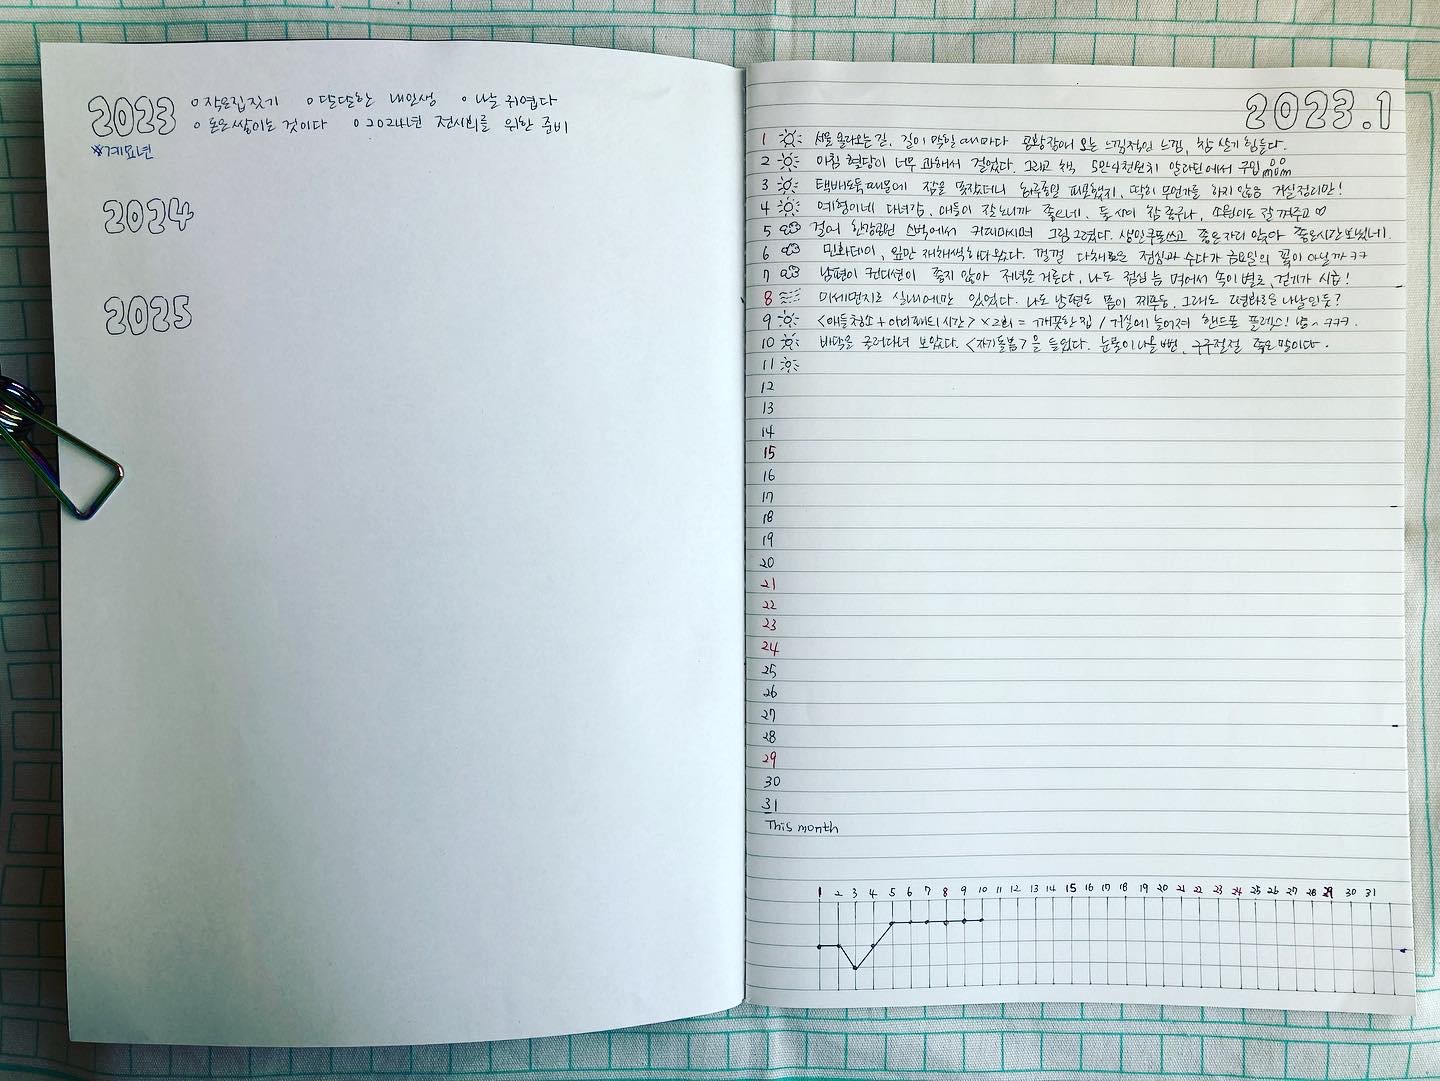 2023 o 작은집짓기 o 단단한 내인생 o 나는 귀엽다
o 돈은 쌓이는 것이다 o 2024년 전시회를 위한 준비
*계묘년
2024
2025
2023.1
1 서울 올라오는 길. 길이 막힐 때마다 공황장애 오는 느낌적인 느낌, 참 살기 힘들다.
2 아침 혈당이 너무 과해서 걸었다. 그리고 책 5만4천원치 알라딘에서 구입
3 택배도둑때문에 잠을 못잤더니 하루종일 피곤했지, 딱히 무언가를 하지 않음 거실정리만!
4 예형이네 다녀감, 애들이 잘 노니까 좋으네. 둘 사이 참 좋구나, 소원이도 잘 껴주고♡
5 걸어 한강공원 스벅에서 커피마시며 그림 그렸다. 생일쿠폰쓰고 좋은자리 앉아 좋은시간보냈네!
6 민화데이, 잎만 채색하다왔다. 껄껄 다채로운 점심과 수다가 금요일의 꽃이 아닐까 ㅋㅋ
7 남편이 컨디션이 좋지 않아 저녁은 거른다, 나도 점심 늦 먹어서 속이 별로, 걷기가 시급!
8 미세먼지로 실내에만 있었다. 나도 남편도 몸이 찌뿌둥, 그래도 평화로운 나날인듯?
9 <애들청소+아이패드1시간>×2회 = 깨끗한 집 / 거실에 늘어져 핸드폰 플렉스! 냠~ ㅋㅋㅋ.
10 바닥을 굴러다녀 보았다. <자기돌봄>을 들었다. 눈물이 나올 뻔, 구구절절 좋은 말이다.
11
12
13
14
15
16
17
18
19
20
21
22
23
24
25
26
27
28
29
30
31
This month
1 2 3 4 5 6 7 8 9 10 11 12 13 14 15 16 17 18 19 20 21 22 23 24 25 26 27 28 29 30 31